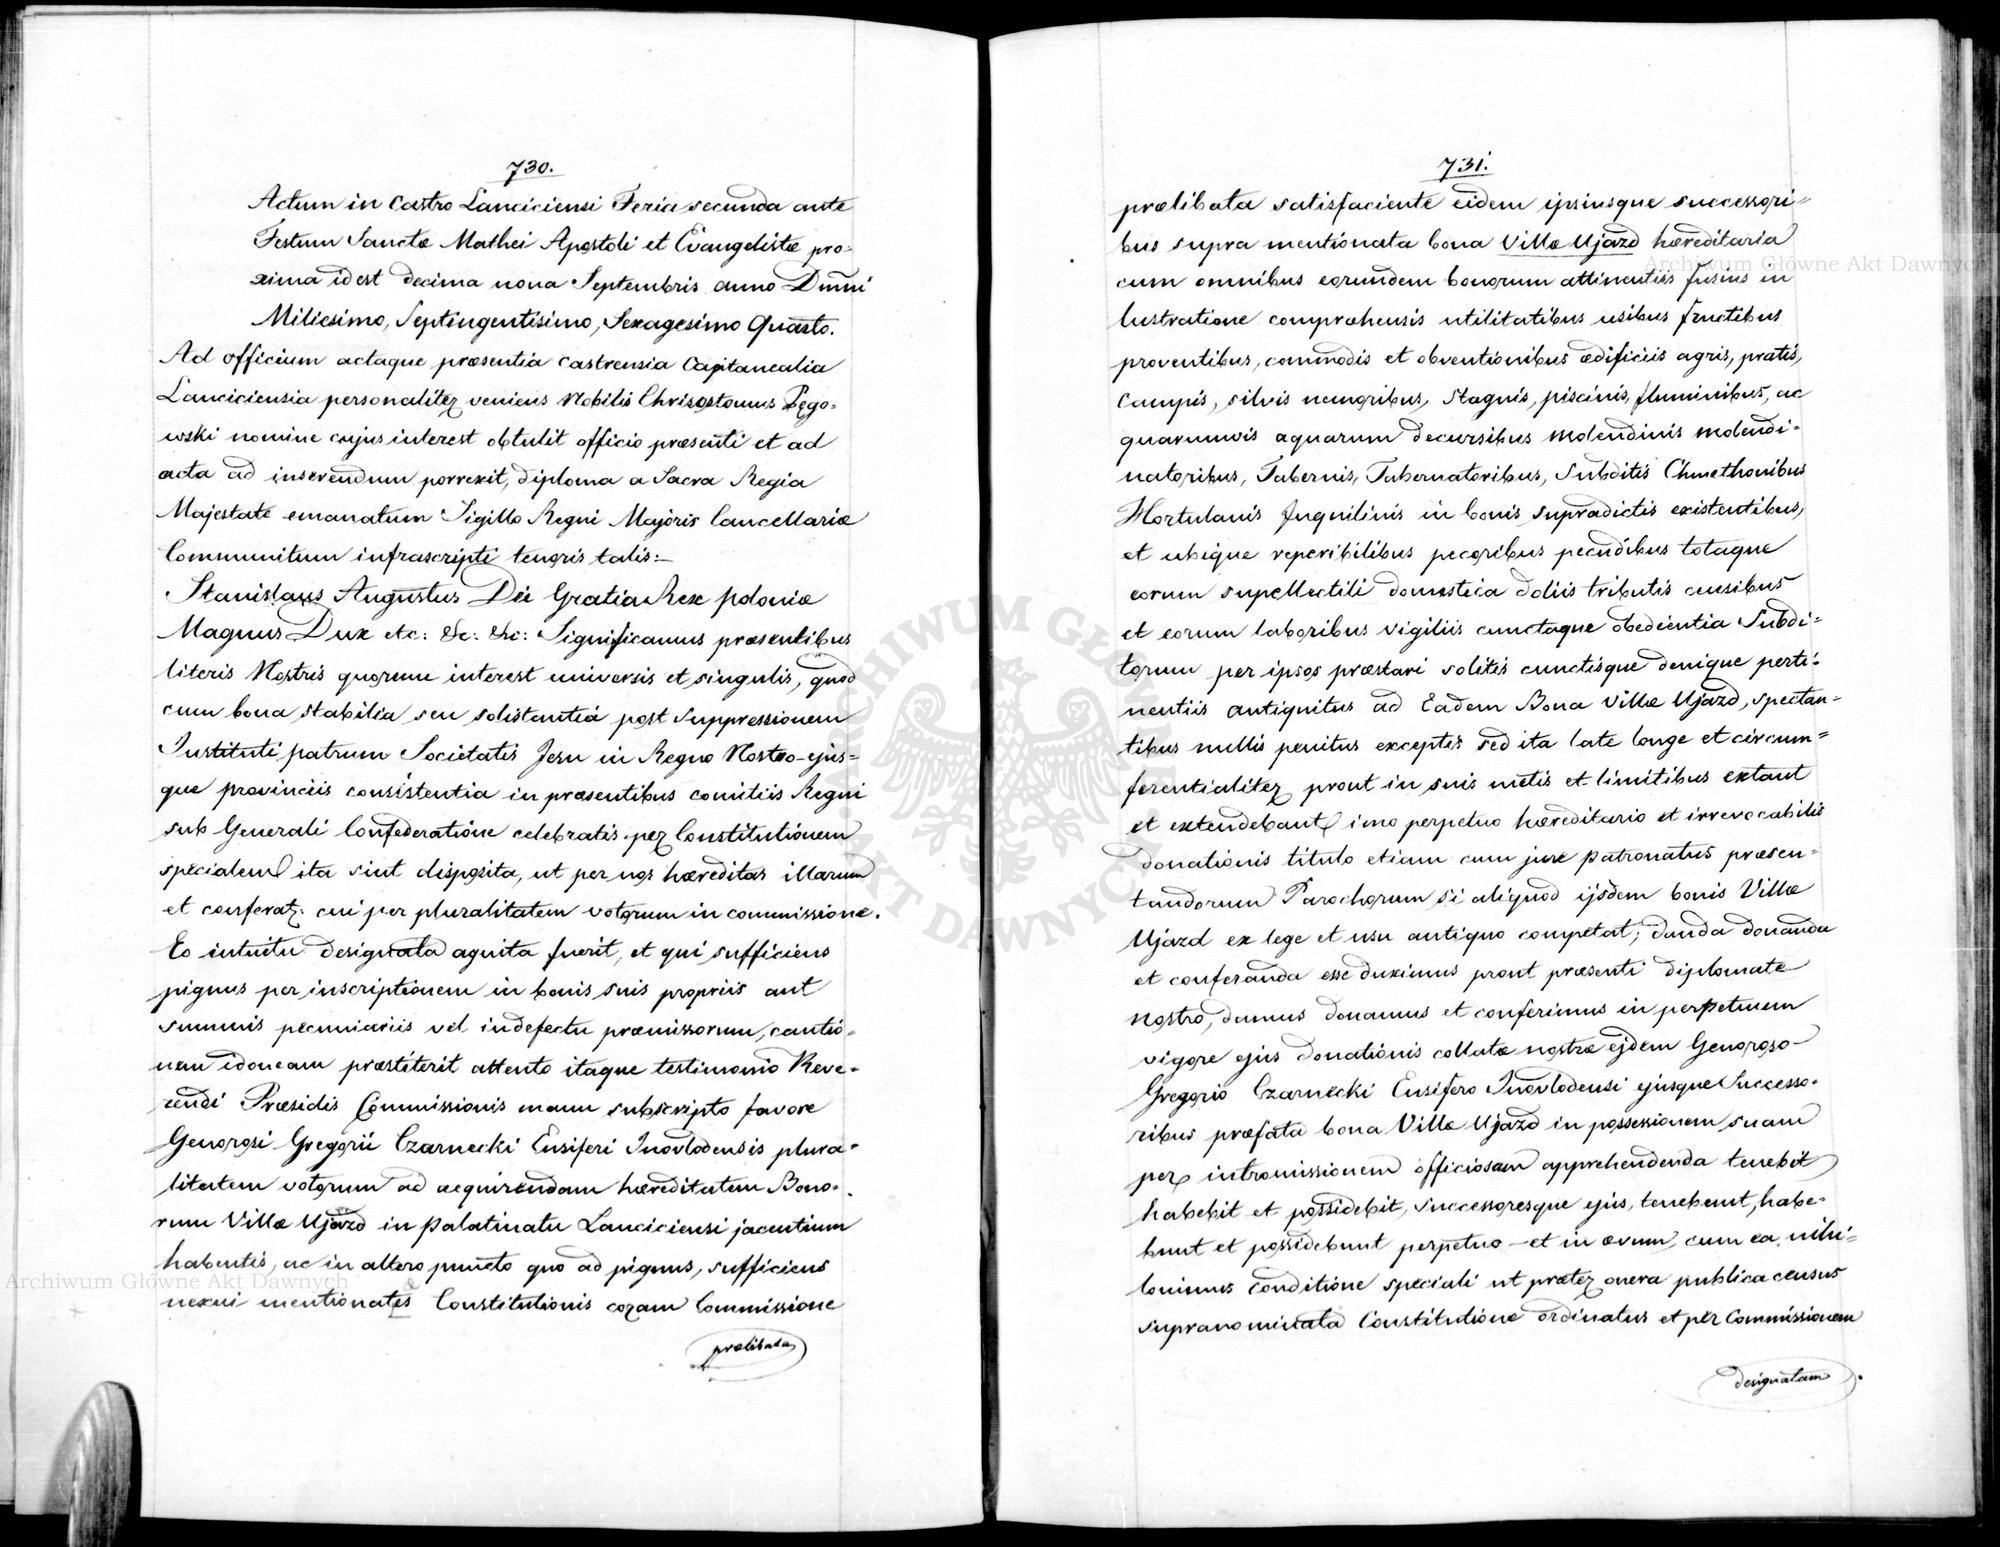 730.
Actum in Castro Lanciciensi Feria secunda ante
Festum Sanctæ Mathei Apostoli et Evangelistæ pro-
xima idest decima nona Septembris anno Dmni
Miliesimo, Septingentisimo, Sexagesimo Quarto.
Ad officium actaque præsentia castrensia Capitanealia
Lanciciensia personaliter veniens Nobilis Chrisostomus Pęgo-
wski nomine cujus interest obtulit officio præsenti et ad
acta ad inserendum porrexit, diploma a Sacra Regia
Majestate emanatum Sigillo Regni Majoris Cancellariæ
Communitum infrascripti tenoris talis:
Stanislaus Augustus Dei Gratia Rex poloniæ
Magnus Dux etc: &c: &c: Significamus præsentibus
literis Nostris quorum interest universis et singulis, quod
cum bona stabilia seu solistantia post suppressionem
Instituti patrum Societatis Jesu in Regno Nostro ejus=
que provinciis consistentia in præsentibus comitiis Regni
sub Generali Confederatione celebratis per Constitutionem
specialem ita sint disposita, ut per nos hæreditas illarum
et conferatz: cui per pluralitatem votorum in commissione.
Eo intuitu designata aquita fuerit, et qui sufficiens
pignus per inscriptionem in bonis suis propriis aut
summis pecuniariis vel indefectu præmissorum, cautio-
nem idoneam præstiterit attento itaque testimonio Reve-
rendi Præsidis Commissionis manu subscripto favore
Generosi Gregorii Czarnecki Ensiferi Inovlodensis plura-
litatem votorum ad acquirendam hæreditatem Bono-
rum Villæ Ujazd in Palatinatu Lanciciensi jacentium
habentis, ac in altero puncto quo ad pignus, sufficiens
nexui mentionates Constitutionis coram Commissione
prælibata
731.
prælibata satisfaciente eidem ipsiusque successori=
bus supra mentionata bona Villæ Ujazd hæreditaria
cum omnibus eorumdem bonorum attinentiis fusius in
lustratione compræhensis utilitatibus usibus fructibus
proventibus, commodis et obventionibus ædificiis agris, pratis,
Campis, silvis nemoribus, Stagnis, piscinis, fluminibus, ac
quarumvis aquarum decursibus molendinis molendi-
natoribus, Tabernis, Tabernatoribus, Subditis Chmethonibus
Hortulanis Inquilinis in bonis supradictis existentibus,
et ubique reperibilibus pecoribus pecudibus totaque
eorum supellectili domestica doliis tributis censibus
et eorum laboribus vigiliis cunctaque obedientia Subdi=
torum per ipsos præstari solitis cunctisque denique perti=
nentiis antiquitus ad Eadem Bona Villæ Ujazd, spectan=
tibus nullis penitus exceptis sed ita late longe et circum=
ferentialiter prout in suis metis et limitibus extant
et extendebant imo perpetuo hæreditario et irrevocabilis
donationis titulo etiam cum jure Patronatus præsen-
tandorum Parochorum si aliquod ijsdem bonis Villæ
Ujazd ex lege et usu antiquo competat; danda donanda
et conferanda esse duximus prout præsenti diplomate
nostro, damus donamus et conferimus in perpetuum
vigore ejus donationis collatæ nostræ ejdem Generoso
Gregorio Czarnecki Ensifero Inovlodensi ejusque Successo-
ribus præfata bona Villæ Ujazd in possessionem suam
per intromissionem officiosam apprehendenda tenebit
habebit et possidebit, Successoresque ejus, tenebunt, habe-
bunt et possidebunt perpetuo et in ævum, cum ea nihi=
lominus conditione speciali ut præter onera publica census
supranominata Constitutione ordinatus et per Commissionem
designatam
ARCHIWUM GŁÓWNE AKT DAWNYCH
Archiwum Główne Akt Dawnych
Archiwum Główne Akt Dawnych